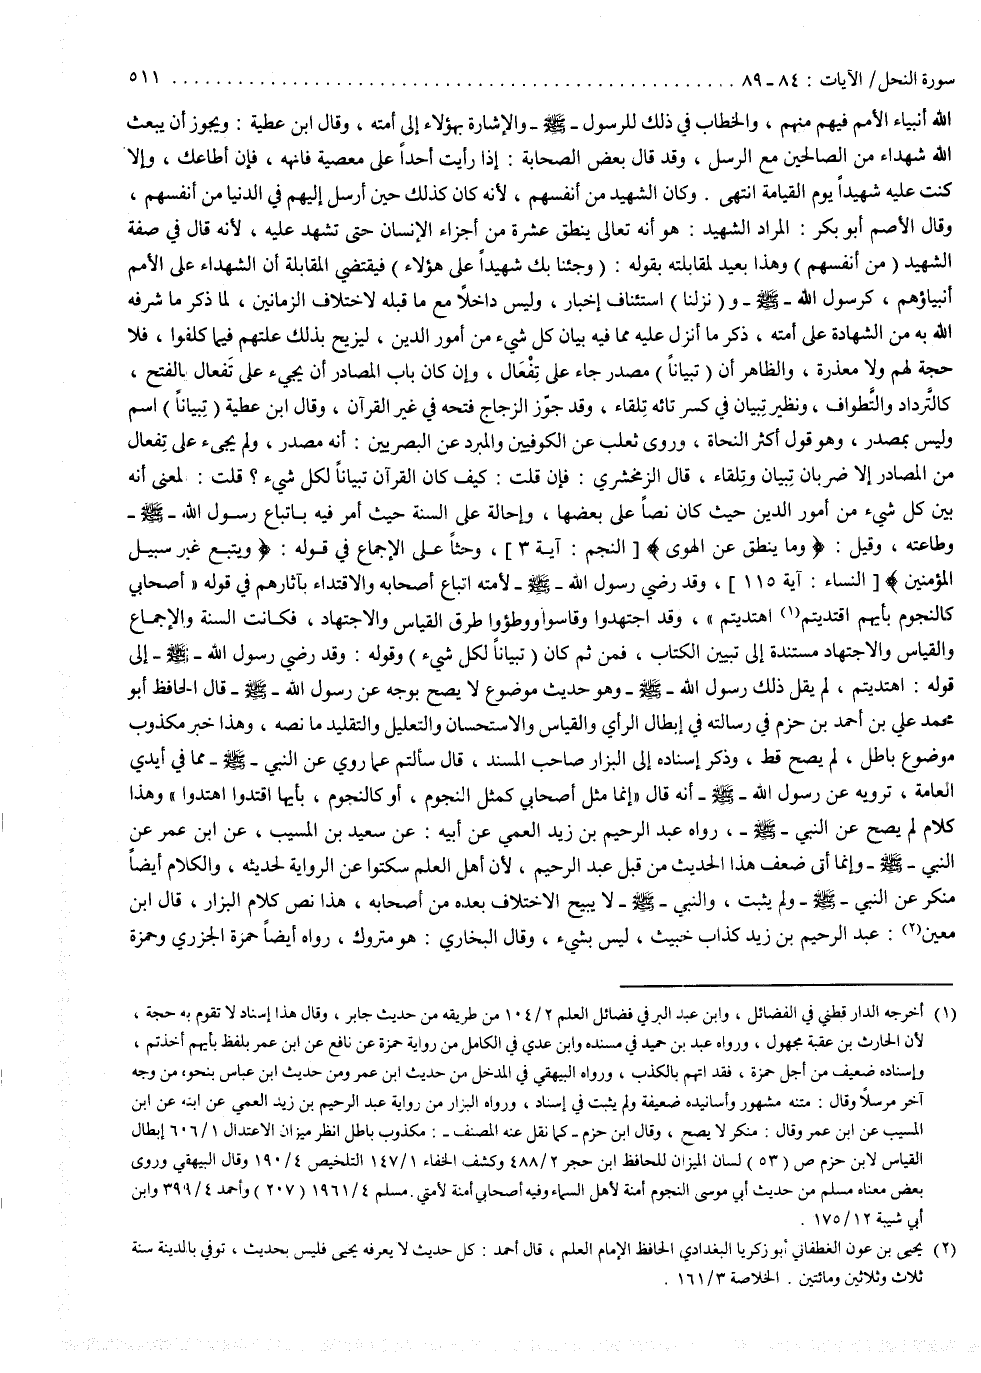 سورة النحل/ الآيات : ٨٤ - ٨٩ ............................................................ ٥١١
الله أنبياء الأمم فيهم منهم ، والخطاب في ذلك للرسول - ﷺ - والإشارة بهؤلاء إلى أمته ، وقال ابن عطية : ويجوز أن يبعث
الله شهداء من الصالحين مع الرسل ، وقد قال بعض الصحابة : إذا رأيت أحداً على معصية فانهه ، فإن أطاعك ، وإلا
كنت عليه شهيداً يوم القيامة انتهى . وكان الشهيد من أنفسهم ، لأنه كان كذلك حين أرسل إليهم في الدنيا من أنفسهم ،
وقال الأصم أبو بكر : المراد الشهيد : هو أنه تعالى ينطق عشرة من أجزاء الإنسان حتى تشهد عليه ، لأنه قال في صفة
الشهيد ( من أنفسهم ) وهذا بعيد لمقابلته بقوله : ( وجئنا بك شهيداً على هؤلاء ) فيقتضي المقابلة أن الشهداء على الأمم
أنبياؤهم ، كرسول الله - ﷺ - و ( نزلنا ) استئناف إخبار ، وليس داخلاً مع ما قبله لاختلاف الزمانين ، لما ذكر ما شرفه
الله به من الشهادة على أمته ، ذكر ما أنزل عليه مما فيه بيان كل شيء من أمور الدين ، ليزيح بذلك علتهم فيما كلفوا ، فلا
حجة لهم ولا معذرة ، والظاهر أن ( تبياناً ) مصدر جاء على تِفْعَال ، وإن كان باب المصادر أن يجيء على تَفعال بالفتح ،
كالتَّرداد والتَّطواف ، ونظير تِبيان في كسر تائه تِلقاء ، وقد جوّز الزجاج فتحه في غير القرآن ، وقال ابن عطية ( تِبياناً ) اسم
وليس بمصدر ، وهو قول أكثر النحاة ، وروى ثعلب عن الكوفيين والمبرد عن البصريين : أنه مصدر ، ولم يجىء على تِفعال
من المصادر إلا ضربان تِبيان وتِلقاء ، قال الزمخشري : فإن قلت : كيف كان القرآن تبياناً لكل شيء ؟ قلت : لمعنى أنه
بين كل شيء من أمور الدين حيث كان نصاً على بعضها ، وإحالة على السنة حيث أمر فيه باتباع رسول الله - ﷺ -
وطاعته ، وقيل : ﴿ وما ينطق عن الهوى ﴾ [ النجم : آية ٣ ] ، وحثاً على الإجماع في قوله : ﴿ ويتبع غير سبيل
المؤمنين ﴾ [ النساء : آية ١١٥ ] ، وقد رضي رسول الله - ﷺ - لأمته اتباع أصحابه والاقتداء بآثارهم في قوله « أصحابي
كالنجوم بأيهم اقتديتم(١) اهتديتم » ، وقد اجتهدوا وقاسوا ووطؤوا طرق القياس والاجتهاد ، فكانت السنة والإجماع
والقياس والاجتهاد مستندة إلى تبيين الكتاب ، فمن ثم كان ( تبياناً لكل شيء ) وقوله : وقد رضي رسول الله - ﷺ - إلى
قوله : اهتديتم ، لم يقل ذلك رسول الله - ﷺ - وهو حديث موضوع لا يصح بوجه عن رسول الله - ﷺ - قال الحافظ أبو
محمد علي بن أحمد بن حزم في رسالته في إبطال الرأي والقياس والاستحسان والتعليل والتقليد ما نصه ، وهذا خبر مكذوب
موضوع باطل ، لم يصح قط ، وذكر إسناده إلى البزار صاحب المسند ، قال سألتم عما روي عن النبي - ﷺ - مما في أيدي
العامة ، ترويه عن رسول الله - ﷺ - أنه قال «إنما مثل أصحابي كمثل النجوم ، أو كالنجوم ، بأيها اقتدوا اهتدوا » وهذا
كلام لم يصح عن النبي - ﷺ - ، رواه عبد الرحيم بن زيد العمي عن أبيه : عن سعيد بن المسيب ، عن ابن عمر عن
النبي - ﷺ - وإنما أتى ضعف هذا الحديث من قبل عبد الرحيم ، لأن أهل العلم سكتوا عن الرواية لحديثه ، والكلام أيضاً
منكر عن النبي - ﷺ - ولم يثبت ، والنبي - ﷺ - لا يبيح الاختلاف بعده من أصحابه ، هذا نص كلام البزار ، قال ابن
معين(٢) : عبد الرحيم بن زيد كذاب خبيث ، ليس بشيء ، وقال البخاري : هو متروك ، رواه أيضاً حمزة الجزري وحمزة
(١) أخرجه الدار قطني في الفضائل ، وابن عبد البر في فضائل العلم ١٠٤/٢ من طريقه من حديث جابر ، وقال هذا إسناد لا تقوم به حجة ،
لأن الحارث بن عقبة مجهول ، ورواه عبد بن حميد في مسنده وابن عدي في الكامل من رواية حمزة عن نافع عن ابن عمر بلفظ بأيهم أخذتم ،
وإسناده ضعيف من أجل حمزة ، فقد اتهم بالكذب ، ورواه البيهقي في المدخل من حديث ابن عمر ومن حديث ابن عباس بنحوه من وجه
آخر مرسلاً وقال : متنه مشهور وأسانيده ضعيفة ولم يثبت في إسناد ، ورواه البزار من رواية عبد الرحيم بن زيد العمي عن ابنه عن ابن
المسيب عن ابن عمر وقال : منكر لا يصح ، وقال ابن حزم - كما نقل عنه المصنف - : مكذوب باطل انظر ميزان الاعتدال ٦٠٦/١ إبطال
القياس لابن حزم ص ( ٥٣ ) لسان الميزان للحافظ ابن حجر ٤٨٨/٢ وكشف الخفاء ١٤٧/١ التلخيص ١٩٠/٤ وقال البيهقي وروى
بعض معناه مسلم من حديث أبي موسى النجوم أمنة لأهل السماء وفيه أصحابي أمنة لأمتي . مسلم ١٩٦١/٤ ( ٢٠٧ ) وأحمد ٣٩٩/٤ وابن
أبي شيبة ١٧٥/١٢ .
(٢) يحيى بن عون الغطفاني أبو زكريا البغدادي الحافظ الإمام العلم ، قال أحمد : كل حديث لا يعرفه يحيى فليس بحديث ، توفي بالدينة سنة
ثلاث وثلاثين ومائتين . الخلاصة ١٦١/٣ .